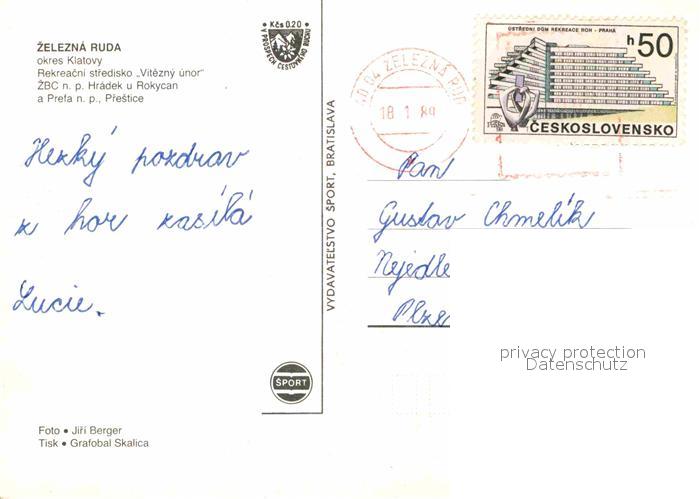 ŽELEZNÁ RUDA
okres Klatovy
Rekreační středisko „Vítězný únor"
ŽBC n. p. Hrádek u Rokycan
a Prefa n. p., Přeštice
Kčs 0.20
V PROSPĚCH CESTOVNÍHO RUCHU
Hezký pozdrav
z hor zasílá
Lucie.
ŠPORT
Foto • Jiří Berger
Tisk • Grafobal Skalica
VYDAVATEĽSTVO ŠPORT, BRATISLAVA
ŽELEZNÁ RUD
18 1 89
ÚSTŘEDNÍ DŮM REKREACE ROH - PRAHA
h 50
ČESKOSLOVENSKO
Pan
Gustav Chmelík
Nejedle
Plze
privacy protection
Datenschutz